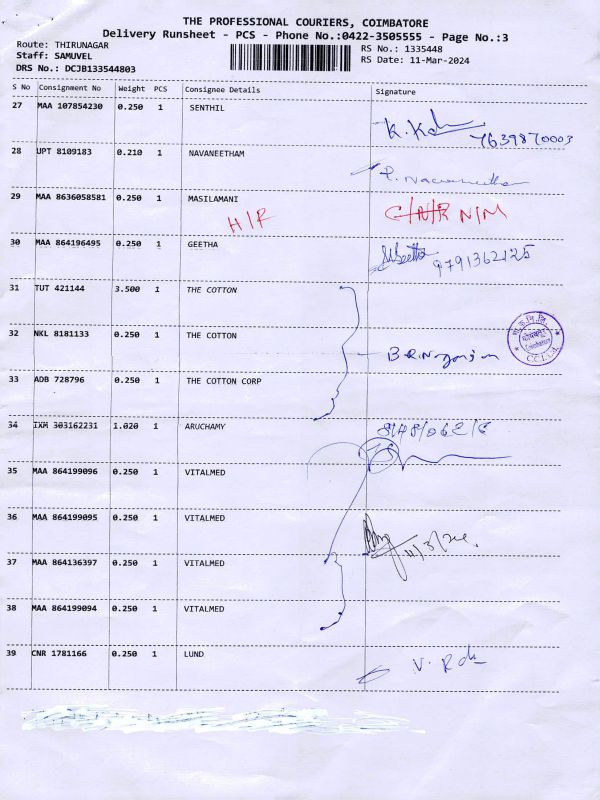 THE PROFESSIONAL COURIERS, COIMBATORE
Delivery Runsheet - PCS - Phone No.:0422-3505555 - Page No.:3
Route: THIRUNAGAR
RS No.: 1335448
Staff: SAMUVEL
RS Date: 11-Mar-2024
DRS No.: DCJB133544803
S No Consignment No Weight PCS Consignee Details Signature
27 MAA 107854230 0.250 1 SENTHIL
7639870003
28 UPT 8109183 0.210 1 NAVANEETHAM
29 MAA 8636058581 0.250 1 MASILAMANI
30 MAA 864196495 0.250 1 GEETHA
9791362125
31 TUT 421144 3.500 1 THE COTTON
32 NKL 8181133 0.250 1 THE COTTON
33 ADB 728796 0.250 1 THE COTTON CORP
34 IXM 303162231 1.020 1 ARUCHAMY
35 MAA 864199096 0.250 1 VITALMED
36 MAA 864199095 0.250 1 VITALMED
11/3/24.
37 MAA 864136397 0.250 1 VITALMED
38 MAA 864199094 0.250 1 VITALMED
39 CNR 1781166 0.250 1 LUND